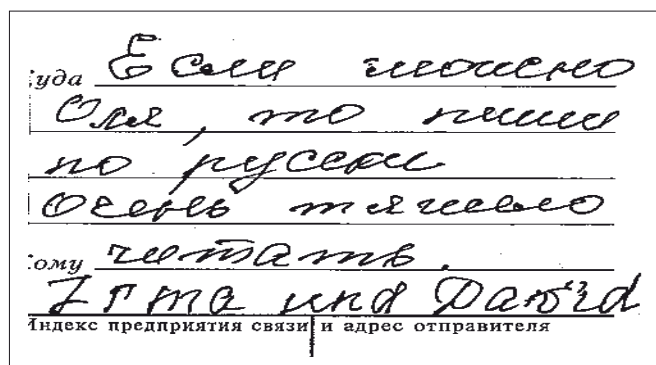 :уда Если можно
Оля, то пиши
по русски
очень тяжело
:ому читать.
Irma und David
Индекс предприятия связи и адрес отправителя